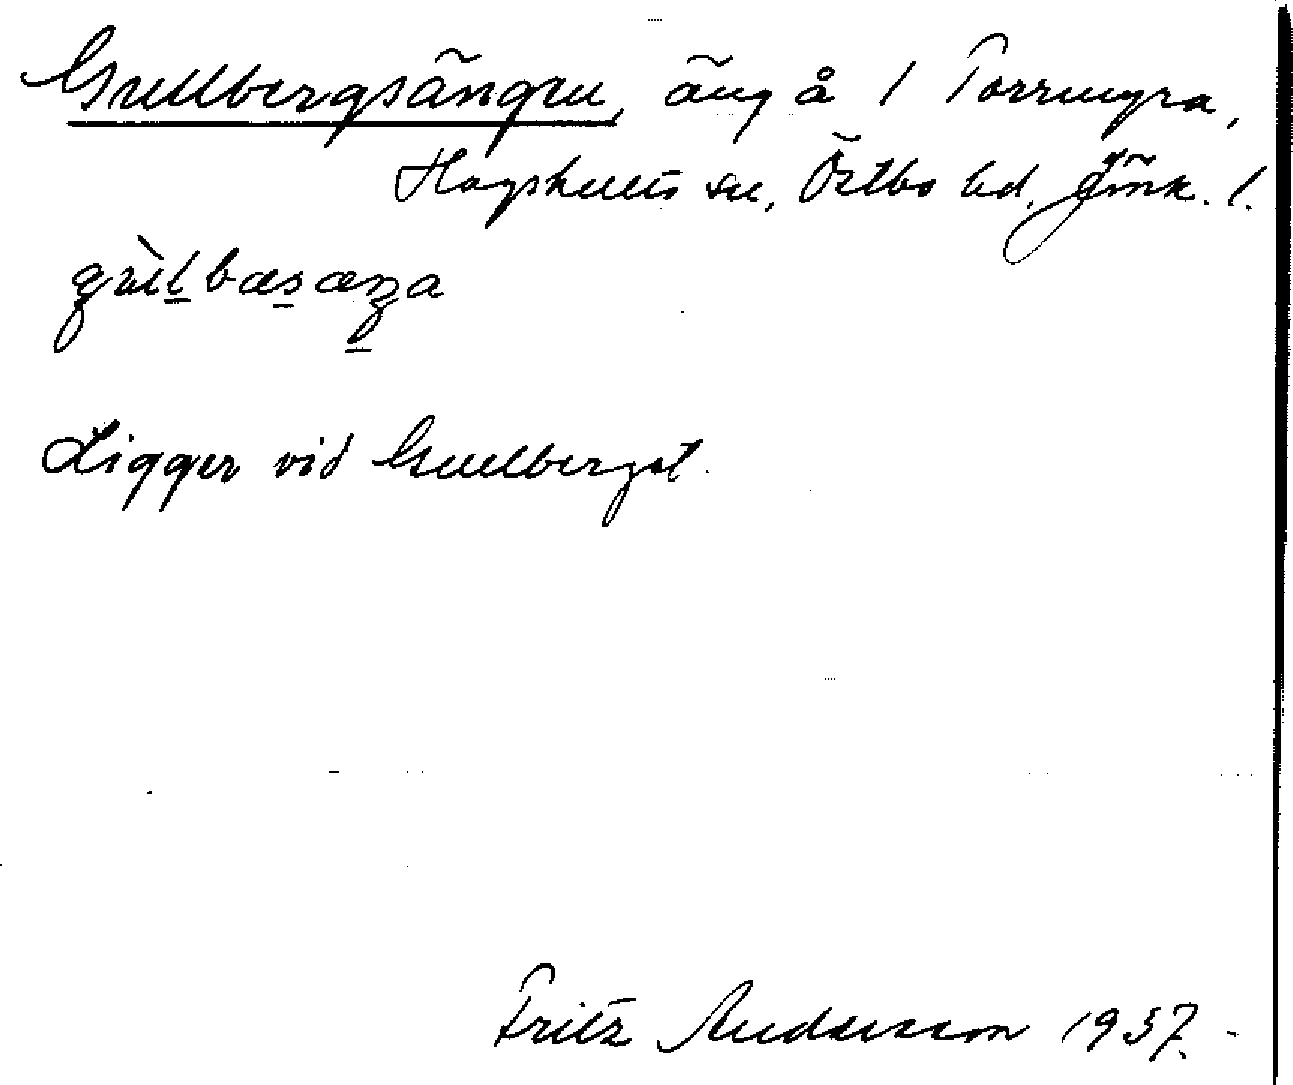 Gullbergsängen, äng å 1 Torrmyra,
Hagshults sn, Östbo hd, Jönk. l.
Ligger vid Gullberget.
Fritz Andersson 1937.